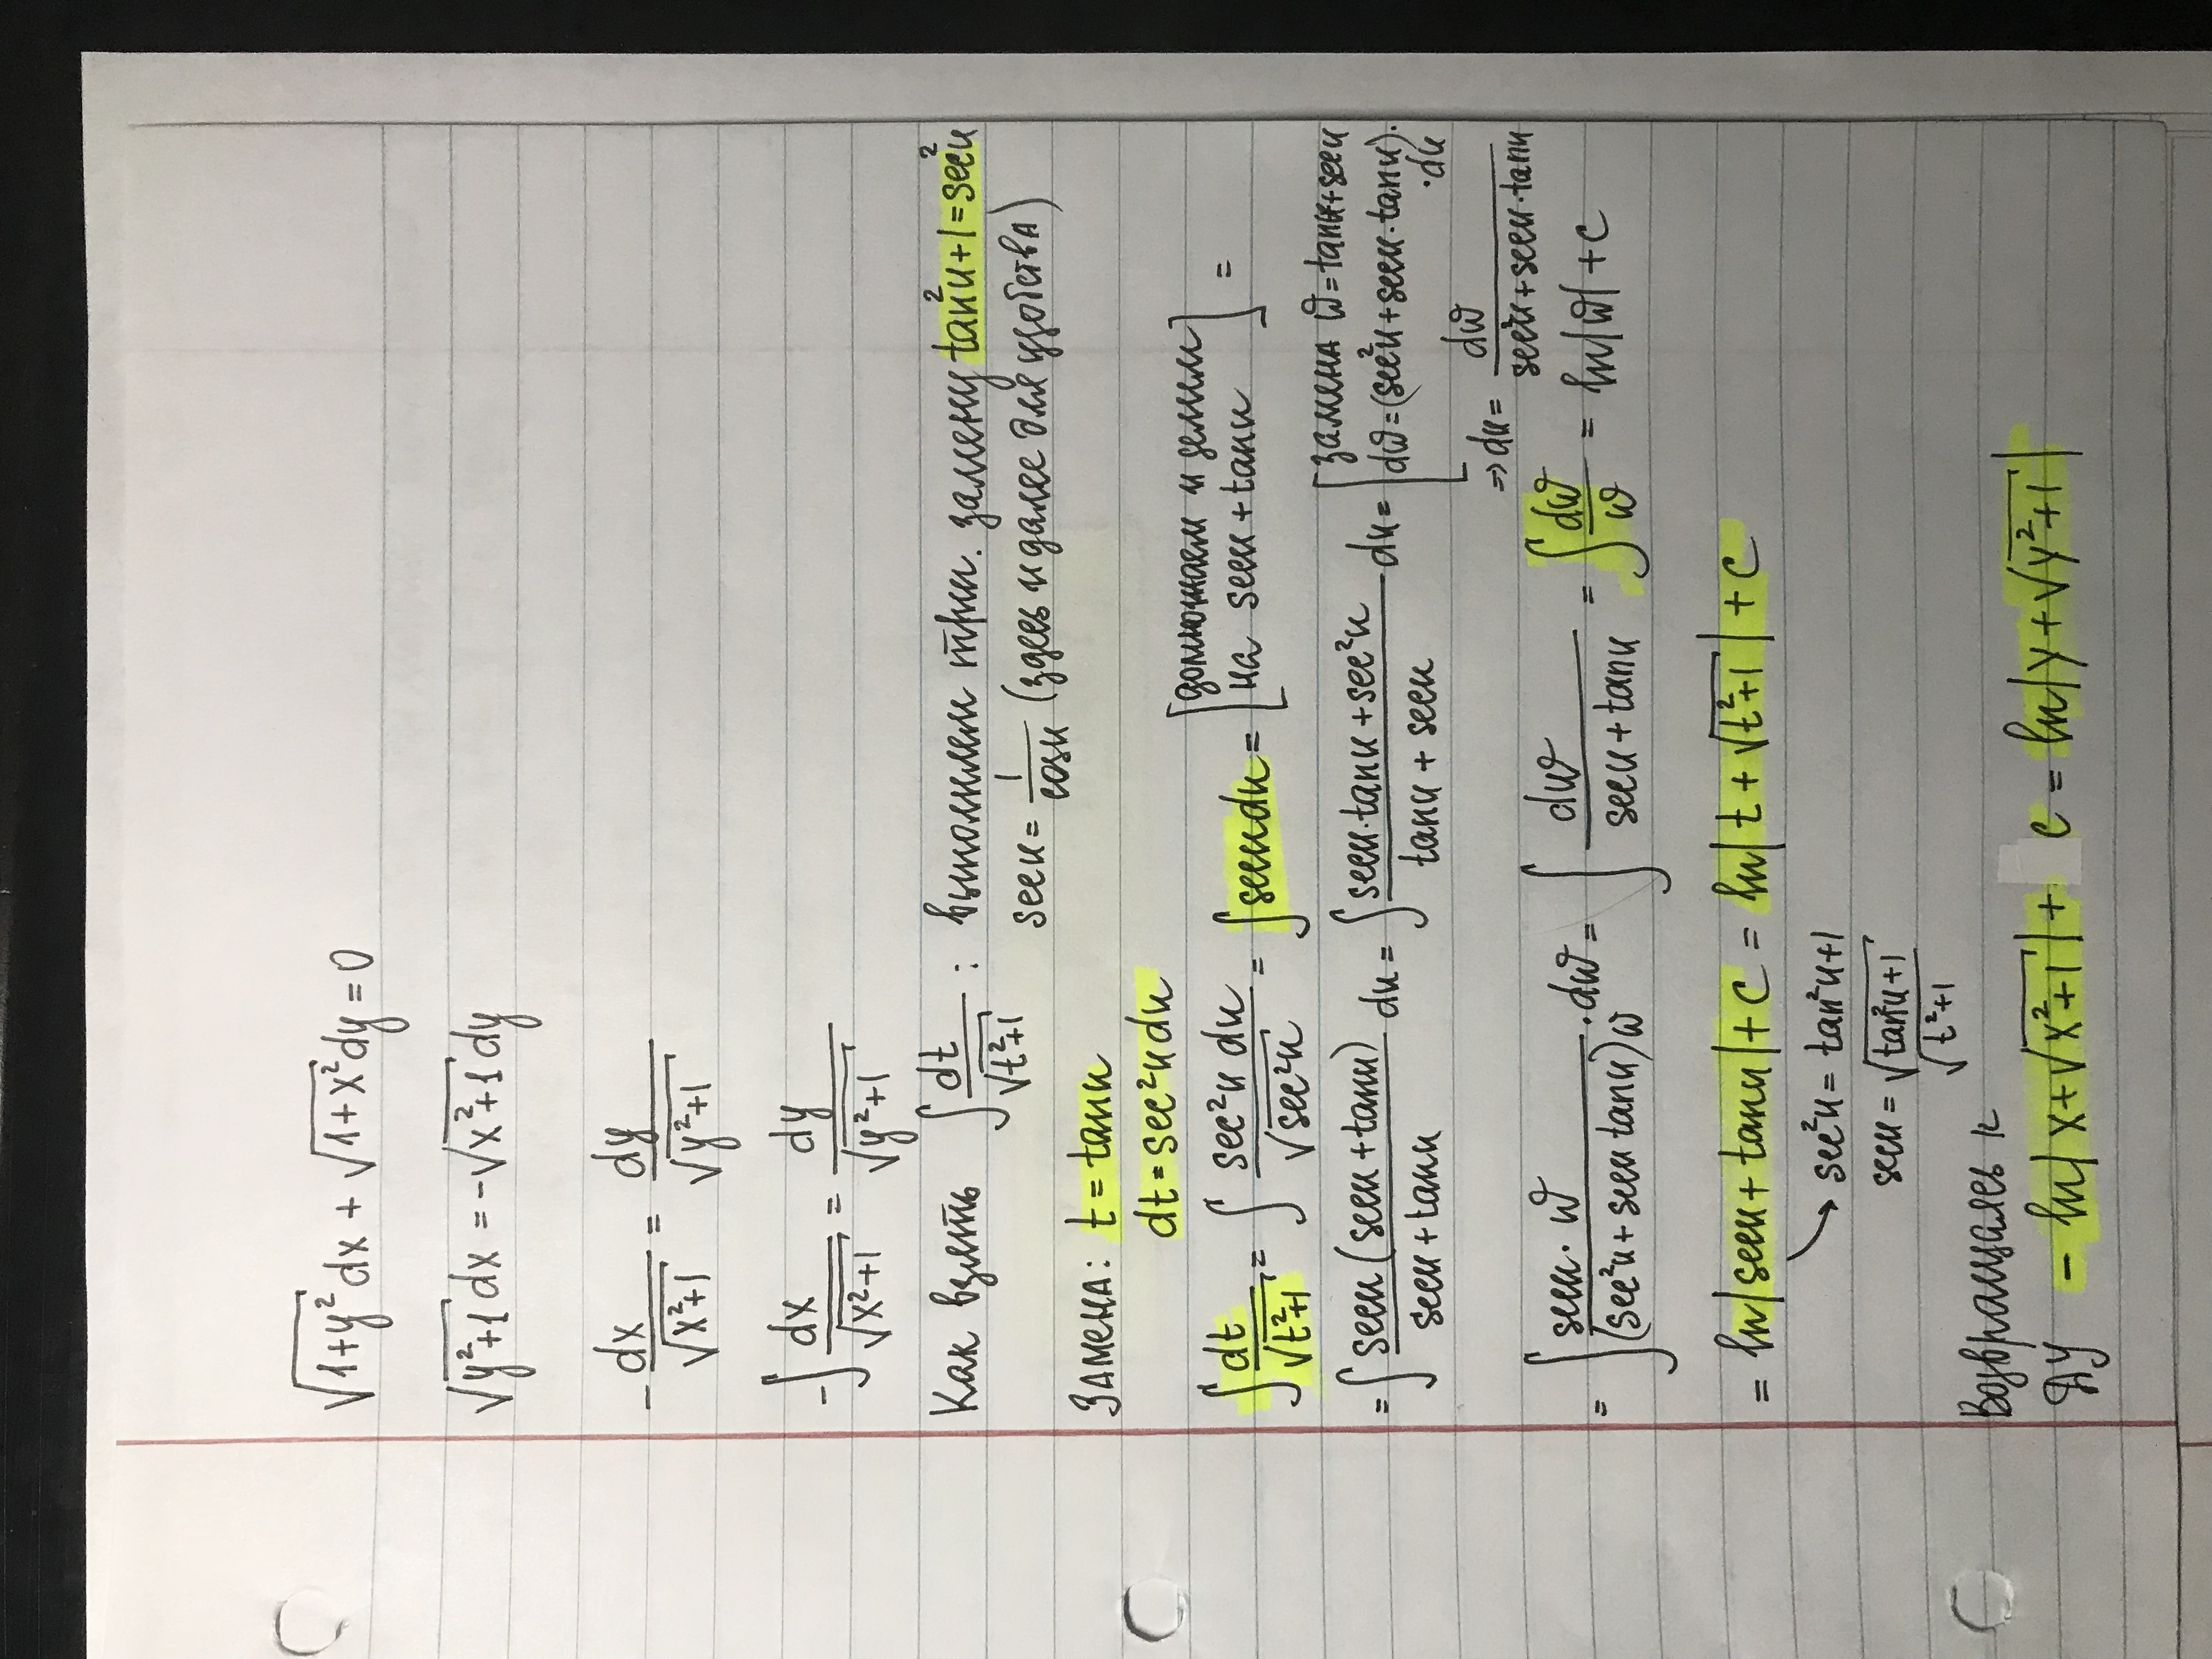 √(1+y²) dx + √(1+x²) dy = 0
√(y²+1) dx = -√(x²+1) dy
- dx/√(x²+1) = dy/√(y²+1)
-∫ dx/√(x²+1) = ∫ dy/√(y²+1)
Как взять ∫ dt/√(t²+1) : выполним триг. замену tan²u+1=sec²u
secu = 1/cosu (здесь и далее для удобства)
Замена: t = tanu
dt = sec²u du
∫ dt/√(t²+1) = ∫ sec²u du/√(sec²u) = ∫ secu du = [домножаем и делим на secu + tanu] =
= ∫ secu(secu+tanu)/(secu+tanu) du = ∫ (secu·tanu+sec²u)/(tanu+secu) du = [замена w=tanu+secu
dw=(sec²u+secu·tanu)·du
⇒ du = dw/(sec²u+secu·tanu)
= ∫ secu·w/((sec²u+secu tanu)w) ·dw = ∫ dw/(secu+tanu) = ∫ dw/w = ln|w|+C
= ln|secu+tanu|+C = ln|t+√(t²+1)|+C
→ sec²u = tan²u+1
secu = √(tan²u+1)
√(t²+1)
Возвращаясь к
ДУ - ln|x+√(x²+1)| + C = ln|y+√(y²+1)|